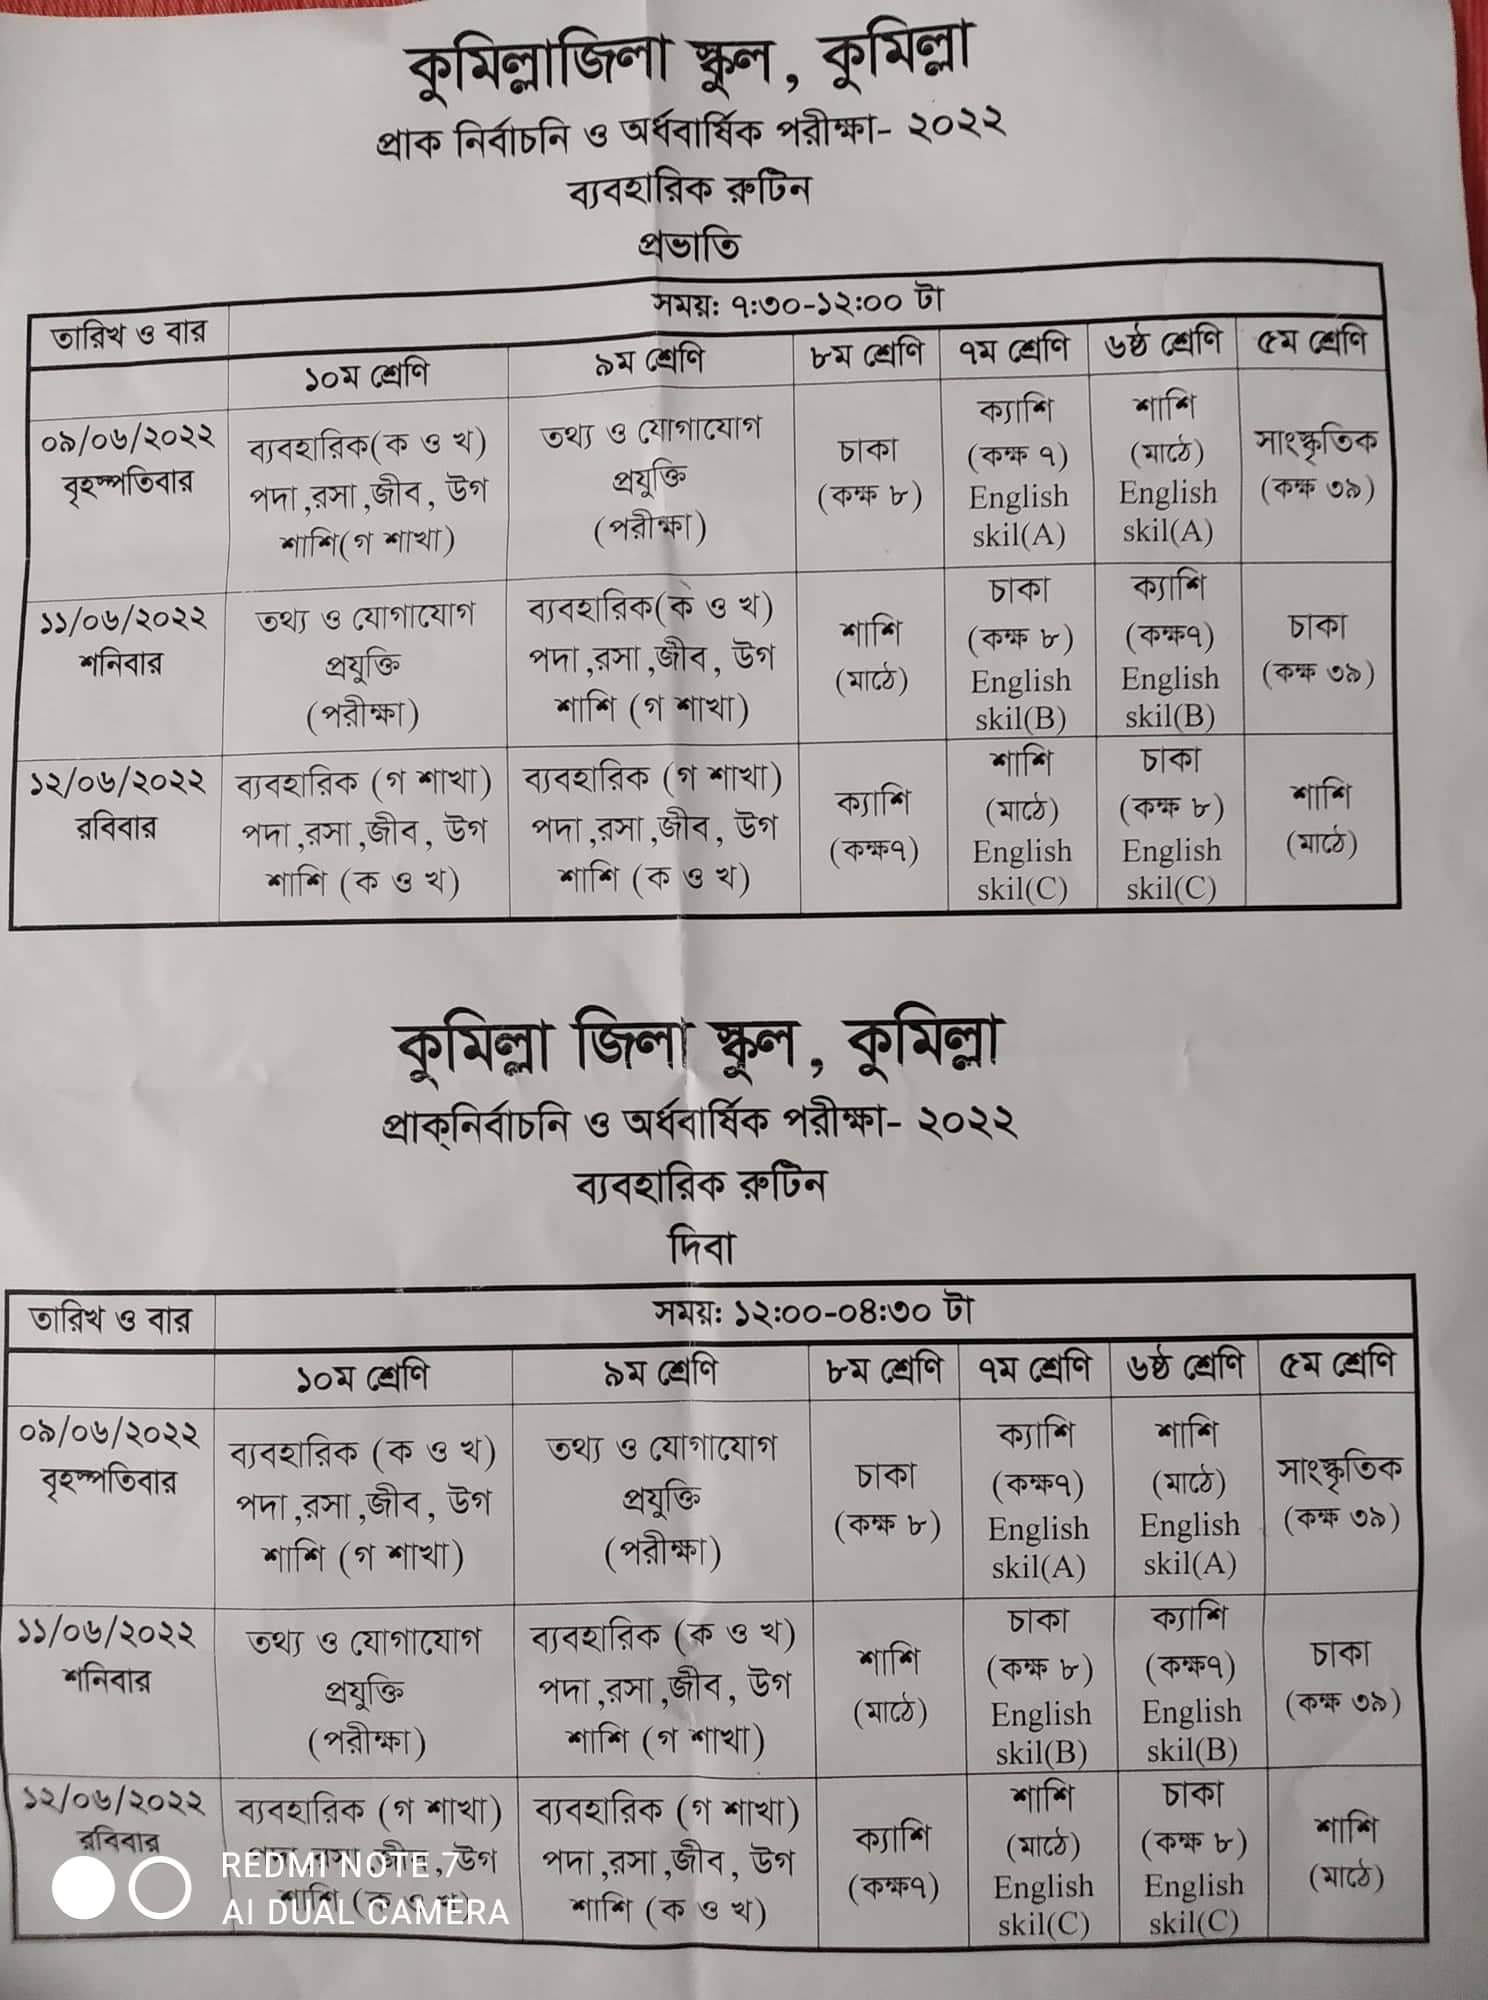 কুমিল্লাজিলা স্কুল, কুমিল্লা
প্রাক নির্বাচনি ও অর্ধবার্ষিক পরীক্ষা- ২০২২
ব্যবহারিক রুটিন
প্রভাতি
তারিখ ও বার সময়: ৭:৩০-১২:০০ টা
১০ম শ্রেণি ৯ম শ্রেণি ৮ম শ্রেণি ৭ম শ্রেণি ৬ষ্ঠ শ্রেণি ৫ম শ্রেণি
০৯/০৬/২০২২
বৃহস্পতিবার
ব্যবহারিক(ক ও খ)
পদা ,রসা ,জীব, উগ
শাশি(গ শাখা)
তথ্য ও যোগাযোগ
প্রযুক্তি
(পরীক্ষা)
চাকা
(কক্ষ ৮)
ক্যাশি
(কক্ষ ৭)
English
skil(A)
শাশি
(মাঠে)
English
skil(A)
সাংস্কৃতিক
(কক্ষ ৩৯)
১১/০৬/২০২২
শনিবার
তথ্য ও যোগাযোগ
প্রযুক্তি
(পরীক্ষা)
ব্যবহারিক(ক ও খ)
পদা ,রসা ,জীব, উগ
শাশি (গ শাখা)
শাশি
(মাঠে)
চাকা
(কক্ষ ৮)
English
skil(B)
ক্যাশি
(কক্ষ৭)
English
skil(B)
চাকা
(কক্ষ ৩৯)
১২/০৬/২০২২
রবিবার
ব্যবহারিক (গ শাখা)
পদা ,রসা ,জীব, উগ
শাশি (ক ও খ)
ব্যবহারিক (গ শাখা)
পদা ,রসা ,জীব, উগ
শাশি (ক ও খ)
ক্যাশি
(কক্ষ৭)
শাশি
(মাঠে)
English
skil(C)
চাকা
(কক্ষ ৮)
English
skil(C)
শাশি
(মাঠে)
কুমিল্লা জিলা স্কুল, কুমিল্লা
প্রাক্‌নির্বাচনি ও অর্ধবার্ষিক পরীক্ষা- ২০২২
ব্যবহারিক রুটিন
দিবা
তারিখ ও বার সময়: ১২:০০-০৪:৩০ টা
১০ম শ্রেণি ৯ম শ্রেণি ৮ম শ্রেণি ৭ম শ্রেণি ৬ষ্ঠ শ্রেণি ৫ম শ্রেণি
০৯/০৬/২০২২
বৃহস্পতিবার
ব্যবহারিক (ক ও খ)
পদা ,রসা ,জীব, উগ
শাশি (গ শাখা)
তথ্য ও যোগাযোগ
প্রযুক্তি
(পরীক্ষা)
চাকা
(কক্ষ ৮)
ক্যাশি
(কক্ষ৭)
English
skil(A)
শাশি
(মাঠে)
English
skil(A)
সাংস্কৃতিক
(কক্ষ ৩৯)
১১/০৬/২০২২
শনিবার
তথ্য ও যোগাযোগ
প্রযুক্তি
(পরীক্ষা)
ব্যবহারিক (ক ও খ)
পদা ,রসা ,জীব, উগ
শাশি (গ শাখা)
শাশি
(মাঠে)
চাকা
(কক্ষ ৮)
English
skil(B)
ক্যাশি
(কক্ষ৭)
English
skil(B)
চাকা
(কক্ষ ৩৯)
১২/০৬/২০২২
রবিবার
ব্যবহারিক (গ শাখা)
পদা ,রসা ,জীব, উগ
শাশি (ক ও খ)
ব্যবহারিক (গ শাখা)
পদা ,রসা ,জীব, উগ
শাশি (ক ও খ)
ক্যাশি
(কক্ষ৭)
শাশি
(মাঠে)
English
skil(C)
চাকা
(কক্ষ ৮)
English
skil(C)
শাশি
(মাঠে)
REDMI NOTE 7
AI DUAL CAMERA